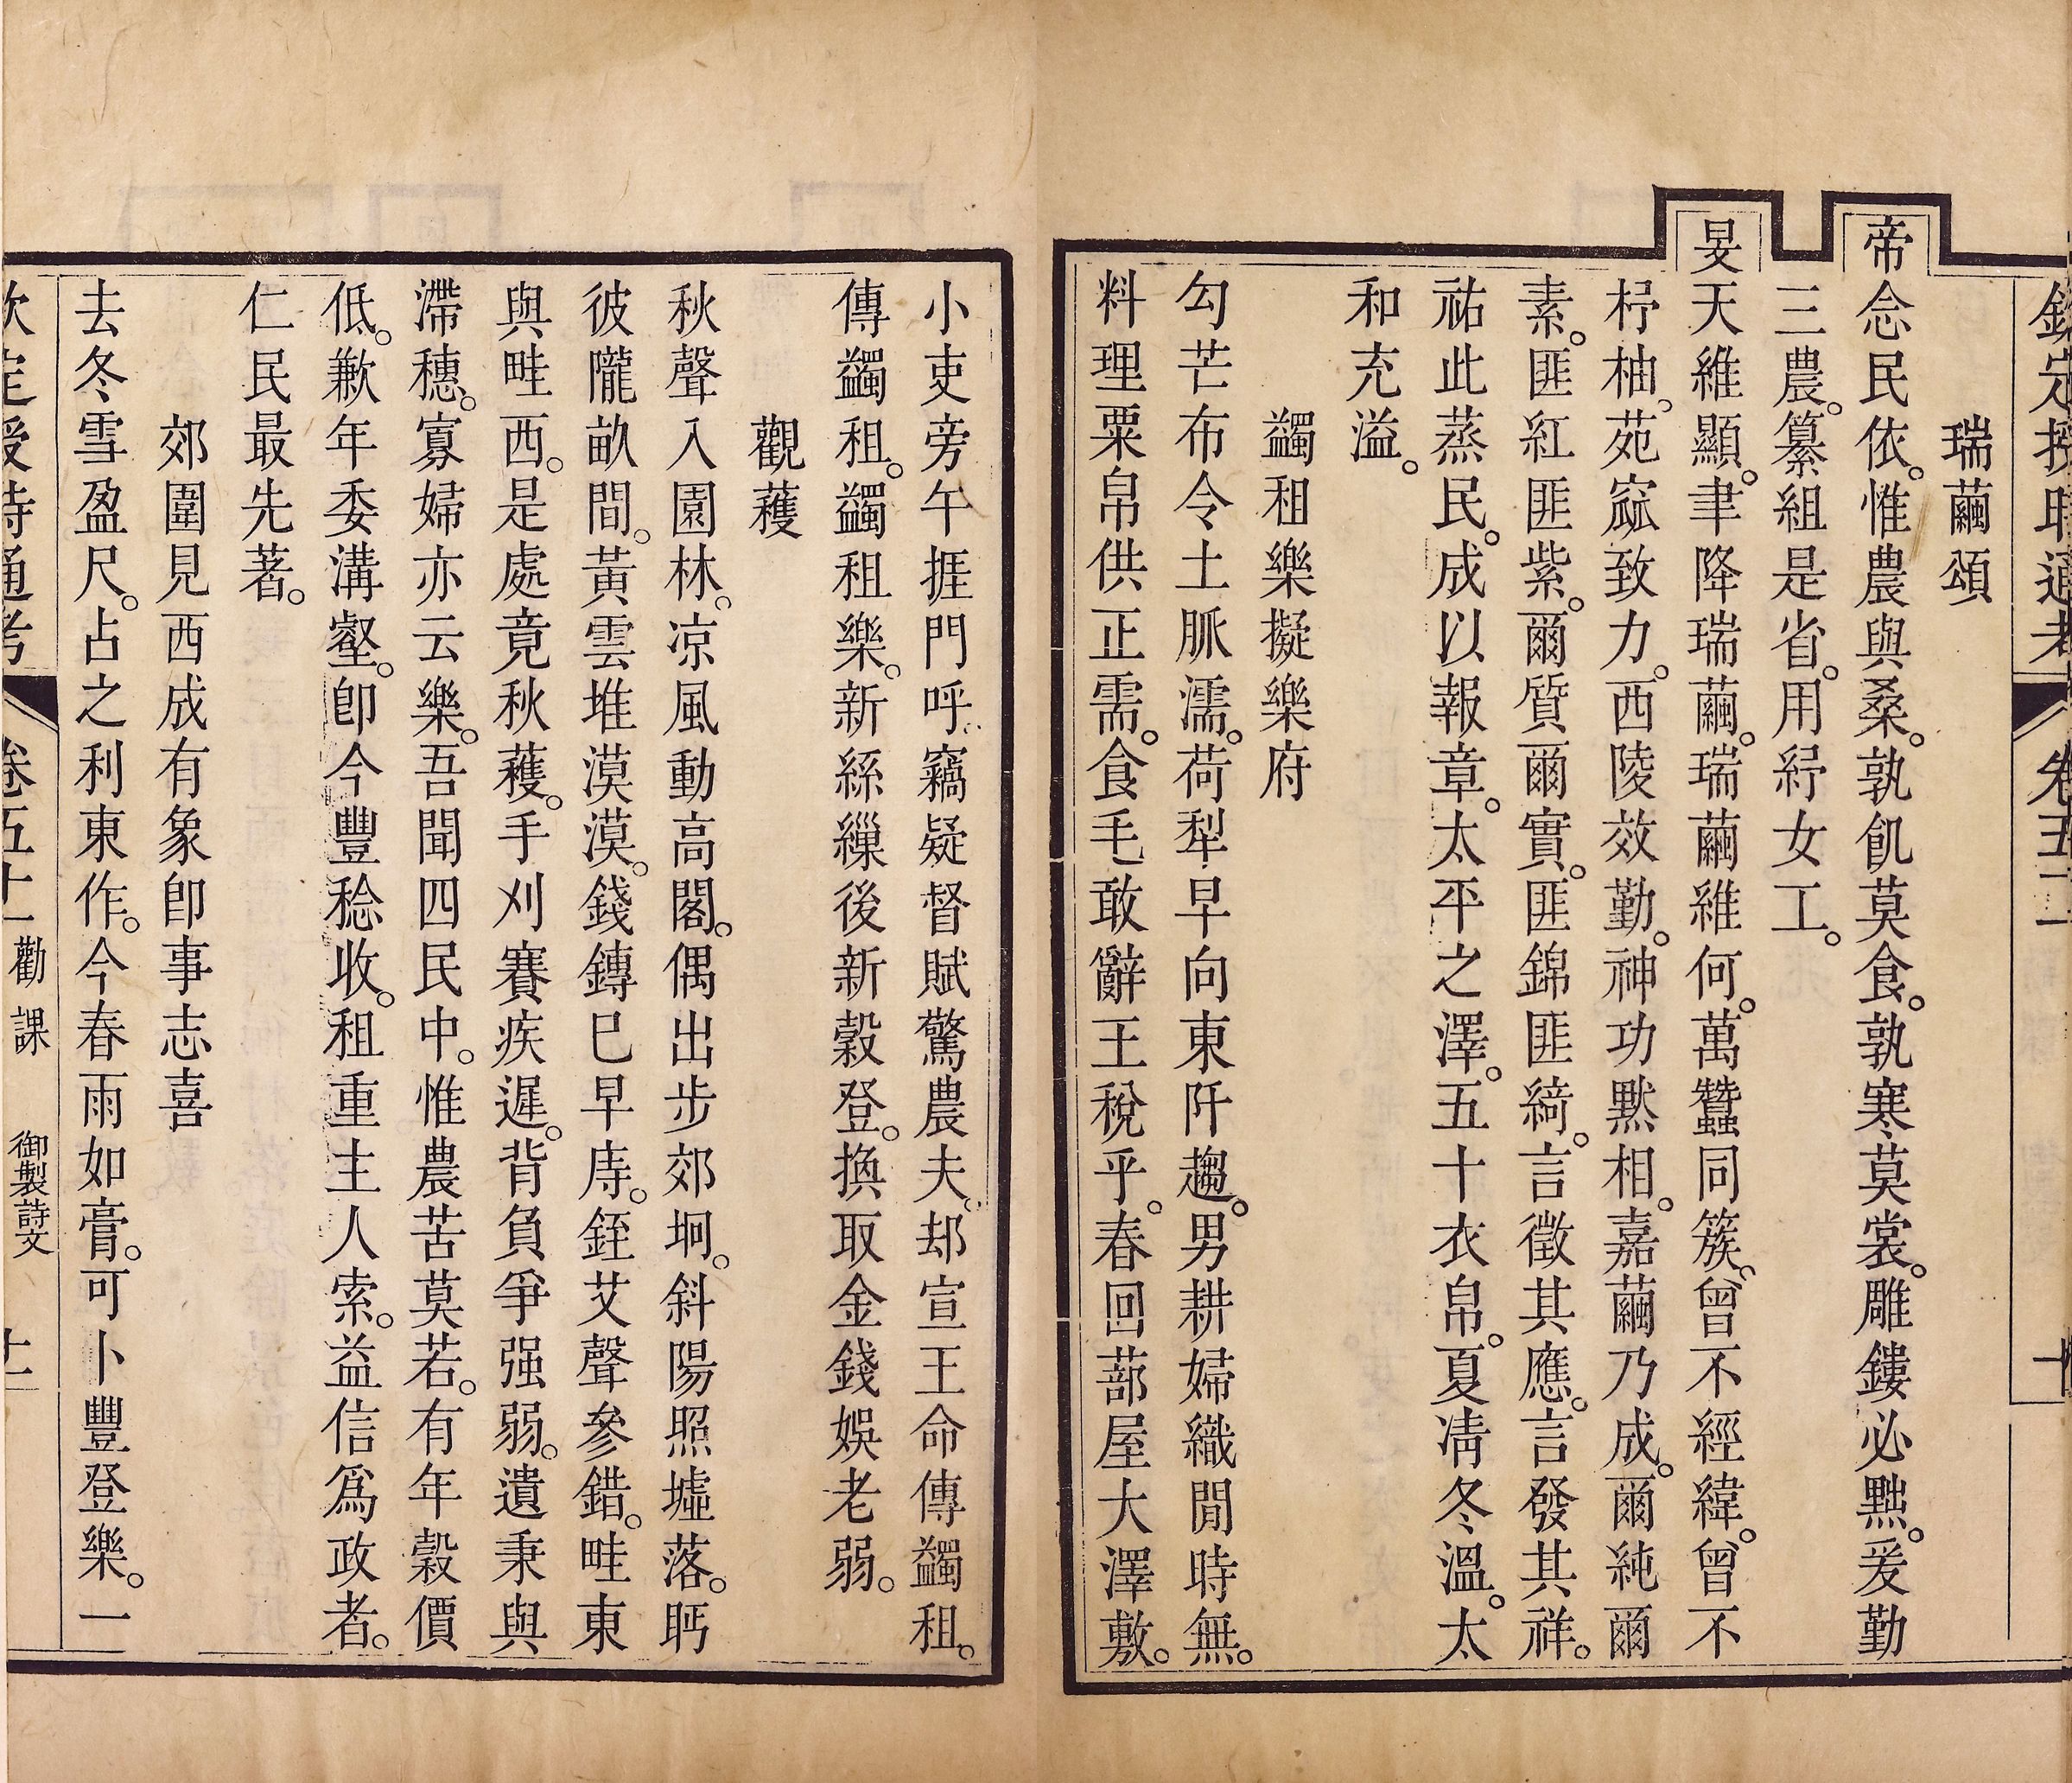 欽定授時通考 卷五十一 十
瑞繭頌
帝念民依。惟農與桑。孰飢莫食。孰寒莫裳。雕鏤必黜。爰勤
三農。纂組是省。用紓女工。
旻天維顯。聿降瑞繭。瑞繭維何。萬蠶同簇。曾不經緯。曾不
杼柚。苑窳致力。西陵效勤。神功默相。嘉繭乃成。爾純爾
素。匪紅匪紫。爾質爾實。匪錦匪綺。言徵其應。言發其祥。
祐此蒸民。成以報章。太平之澤。五十衣帛。夏凊冬溫。太
和充溢。
蠲租樂擬樂府
勾芒布令土脈濡。荷犁早向東阡趨。男耕婦織閒時無。
料理粟帛供正需。食毛敢辭王稅乎。春回蔀屋大澤敷。
小吏旁午捱門呼。竊疑督賦驚農夫。却宣王命傳蠲租。
傳蠲租。蠲租樂。新絲繅後新穀登。換取金錢娛老弱。
觀穫
秋聲入園林。凉風動高閣。偶出步郊坰。斜陽照墟落。眄
彼隴畝間。黃雲堆漠漠。錢鎛巳早庤。銍艾聲參錯。畦東
與畦西。是處竟秋穫。手刈賽疾遲。背負爭强弱。遺秉與
滯穗。寡婦亦云樂。吾聞四民中。惟農苦莫若。有年穀價
低。歉年委溝壑。卽今豐稔收。租重主人索。益信爲政者。
仁民最先著。
郊圍見西成有象卽事志喜
去冬雪盈尺。占之利東作。今春雨如膏。可卜豐登樂。一
欽定授時通考 卷五十一 勸課 御製詩文 十一